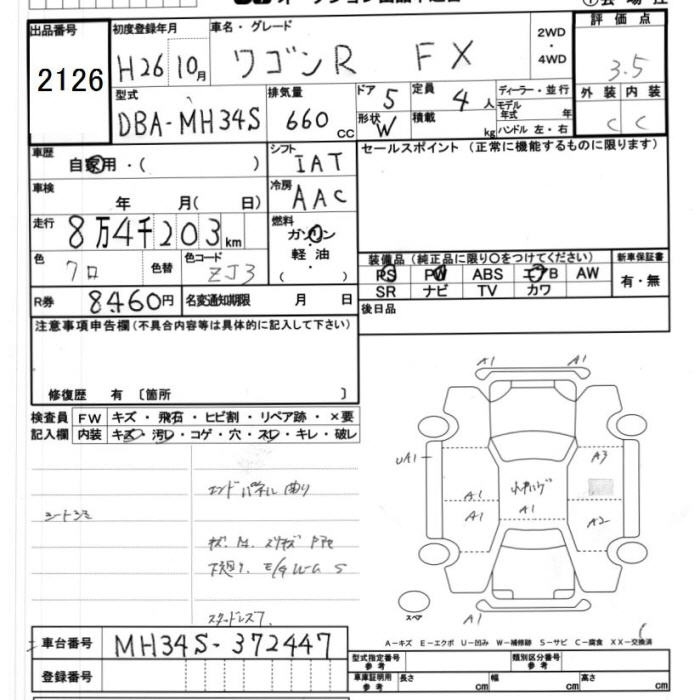 出品番号
2126
初度登録年月
H26 10月
車名・グレード
ワゴンR FX
2WD
・
4WD
評価点
3.5
外装 内装
C C
型式
DBA-MH34S
排気量
660 cc
ドア 5
形状 W
定員 4 人
積載 kg
ディーラー・並行
モデル年式 年
ハンドル 左・右
車歴
自家用・( )
シフト
IAT
セールスポイント (正常に機能するものに限ります)
車検
年 月( 日)
冷房
AAC
走行
8万4千203km
燃料
ガソリン
・
軽油
・
( )
色
クロ
色替
色コード
ZJ3
装備品 (純正品に限り○をつけてください)
PS PW ABS エアB AW
SR ナビ TV カワ
新車保証書
有・無
R券
8460円
名変通知期限 月 日
後日品
注意事項申告欄(不具合内容等は具体的に記入して下さい)
修復歴 有 〔箇所 〕
検査員
記入欄
FW キズ・飛石・ヒビ割・リペア跡・×要
内装 キズ・汚レ・コゲ・穴・スレ・キレ・破レ
シートシミ
エンドパネル曲り
スタッドレス
A1 A1
UA1 A3
A1
A1 A1 A2
A1 A1
スペア
A－キズ E－エクボ U－凹み W－補修跡 S－サビ C－腐食 XX－交換済
車台番号
MH34S-372447
登録番号
型式指定番号
参考
類別区分番号
参考
車庫証明用
参考
長さ cm
幅 cm
高さ cm